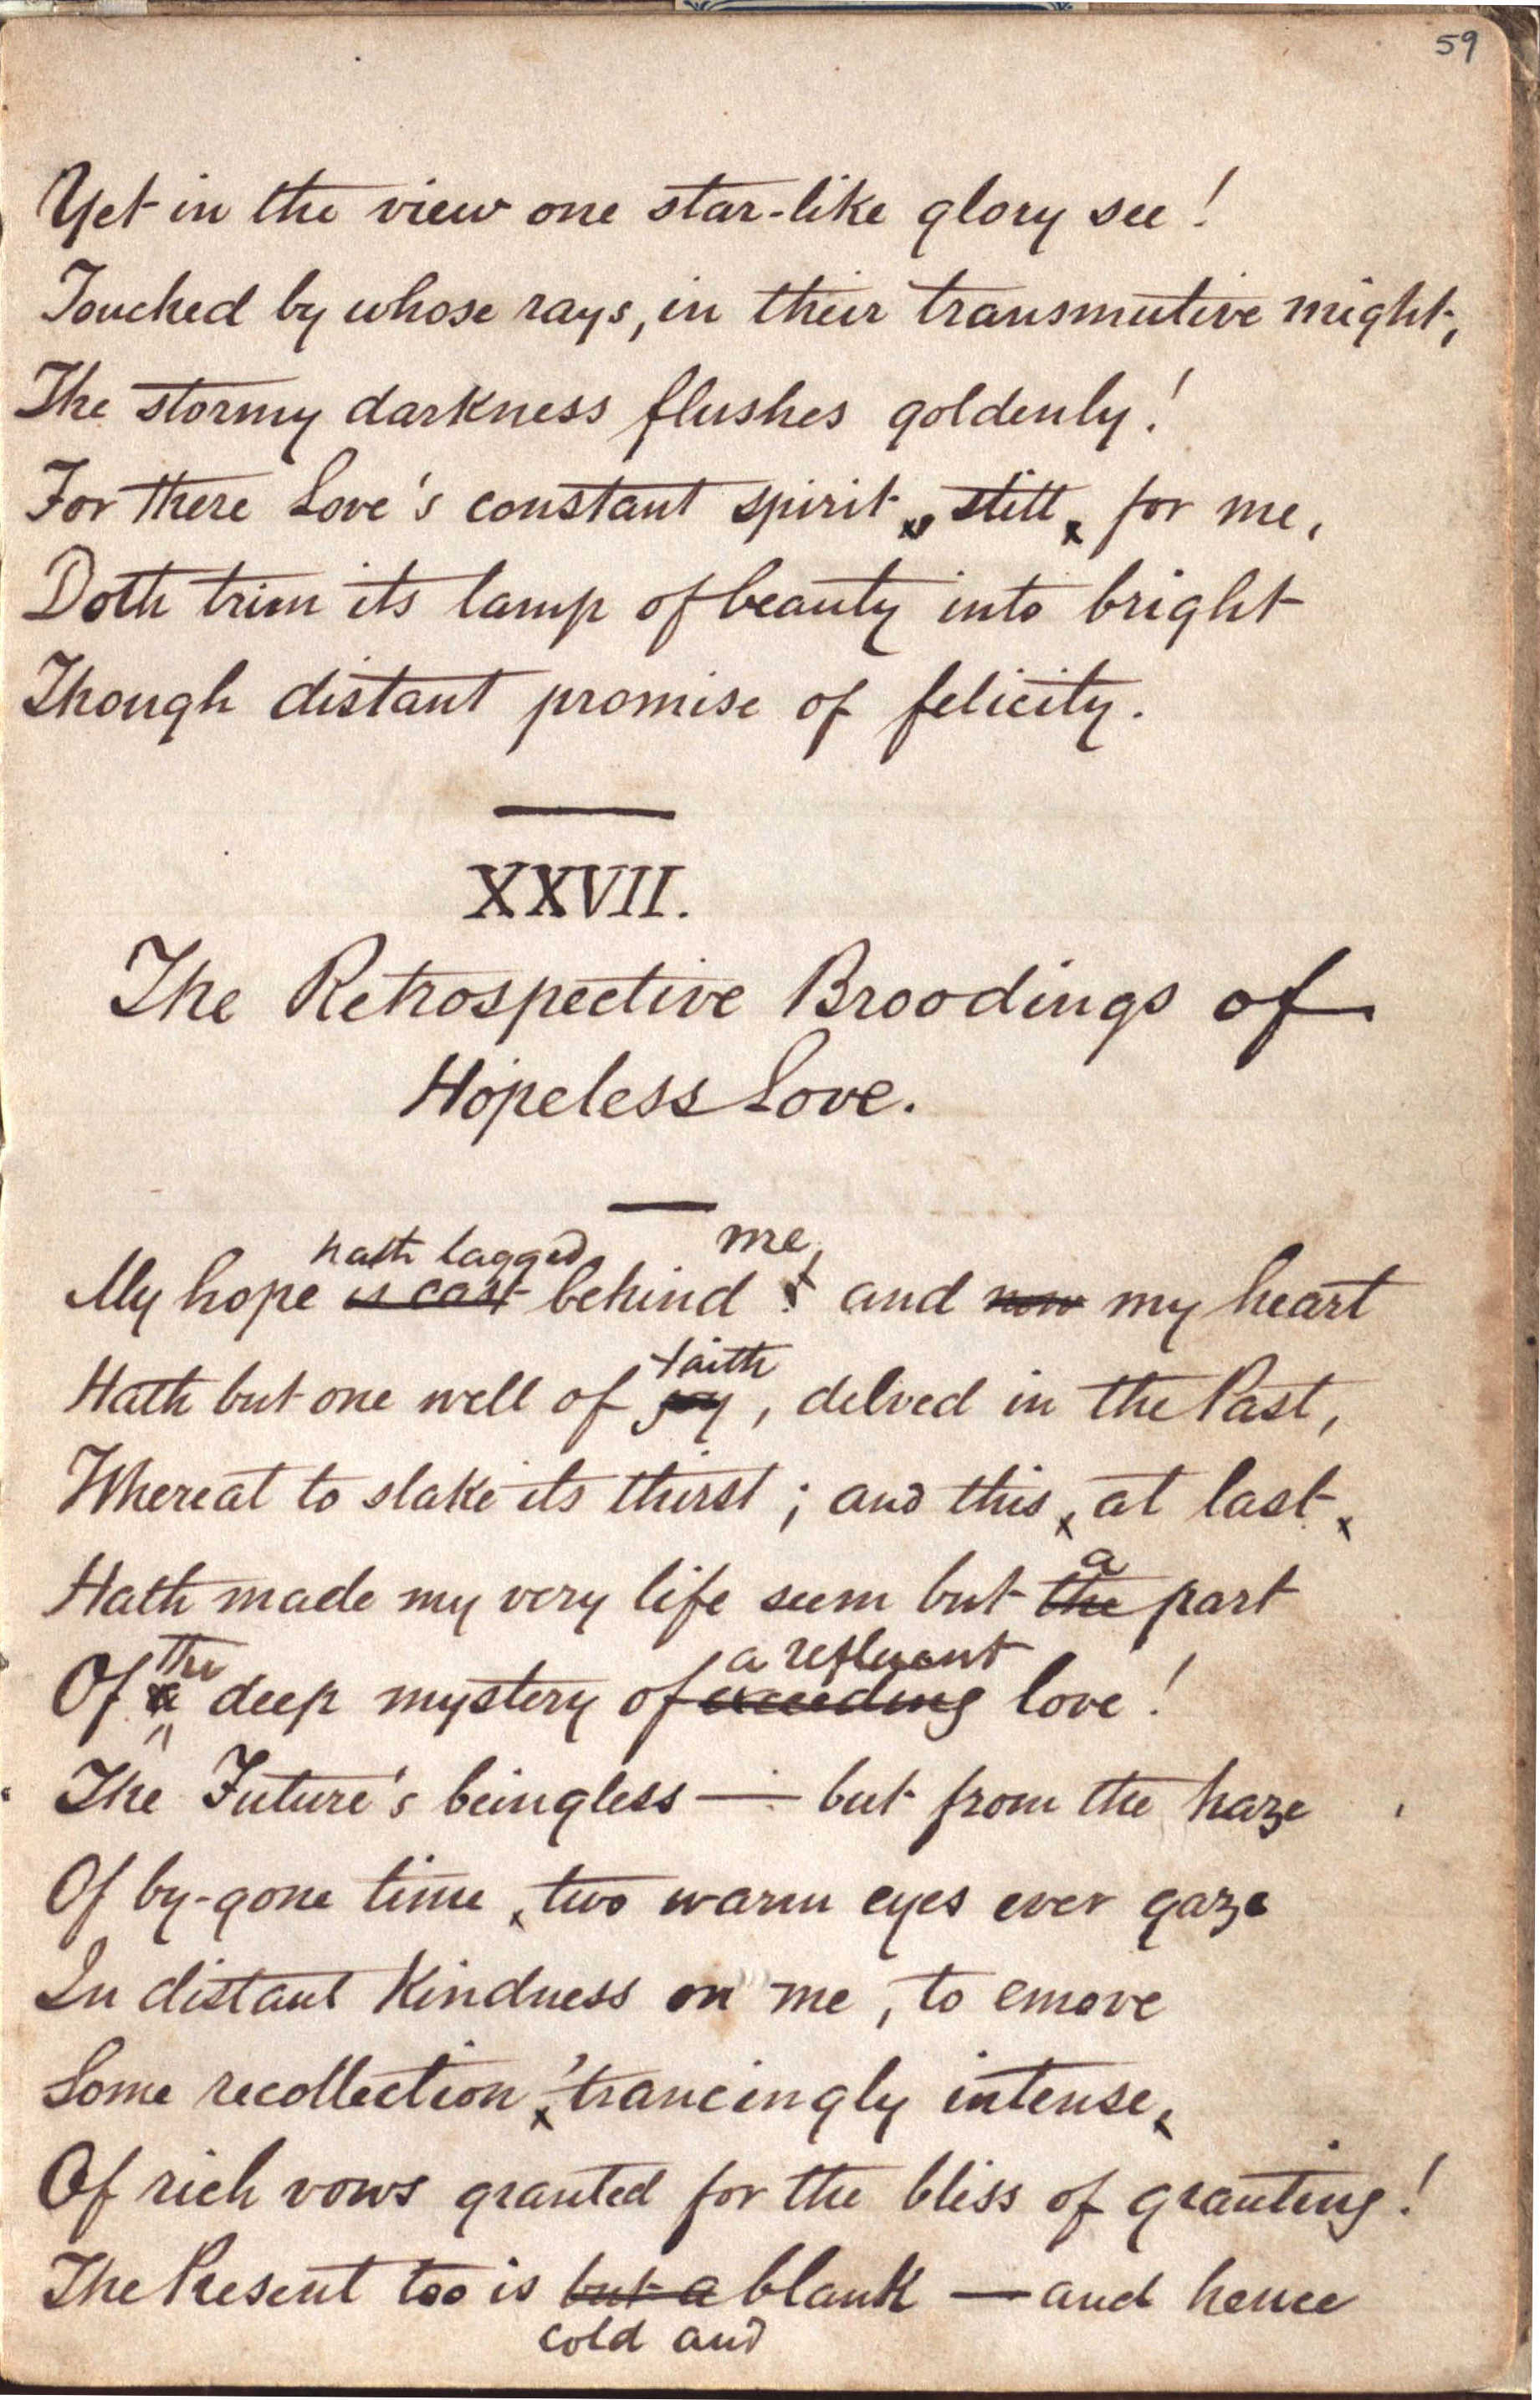 59
Yet in the view one star-like glory see!
Touched by whose rays, in their transmutive might,
The stormy darkness flushes goldenly!
For there Love's constant spirit, still, for me,
Doth trim its lamp of beauty into bright
Though distant promise of felicity.
XXVII.
The Retrospective Broodings of
Hopeless Love.
hath lagged me,
My hope is cast behind! and now my heart
faith
Hath but one well of joy, delved in the Past,
Whereat to slake its thirst; and this, at last,
a
Hath made my very life seem but the part
the a refluent
Of a deep mystery of exceeding love!
The Future's beingless — but from the haze
Of by-gone time, two warm eyes ever gaze
In distant kindness on me, to emove
Some recollection, 'trancingly intense,
Of rich vows granted for the bliss of granting!
The Present too is but a blank — and hence
cold and